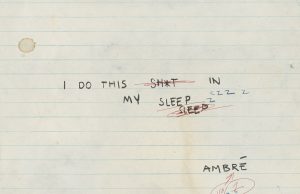 I DO THIS SH*T IN
MY SLEEP zzz z
z
SLEEP
AMBRÉ